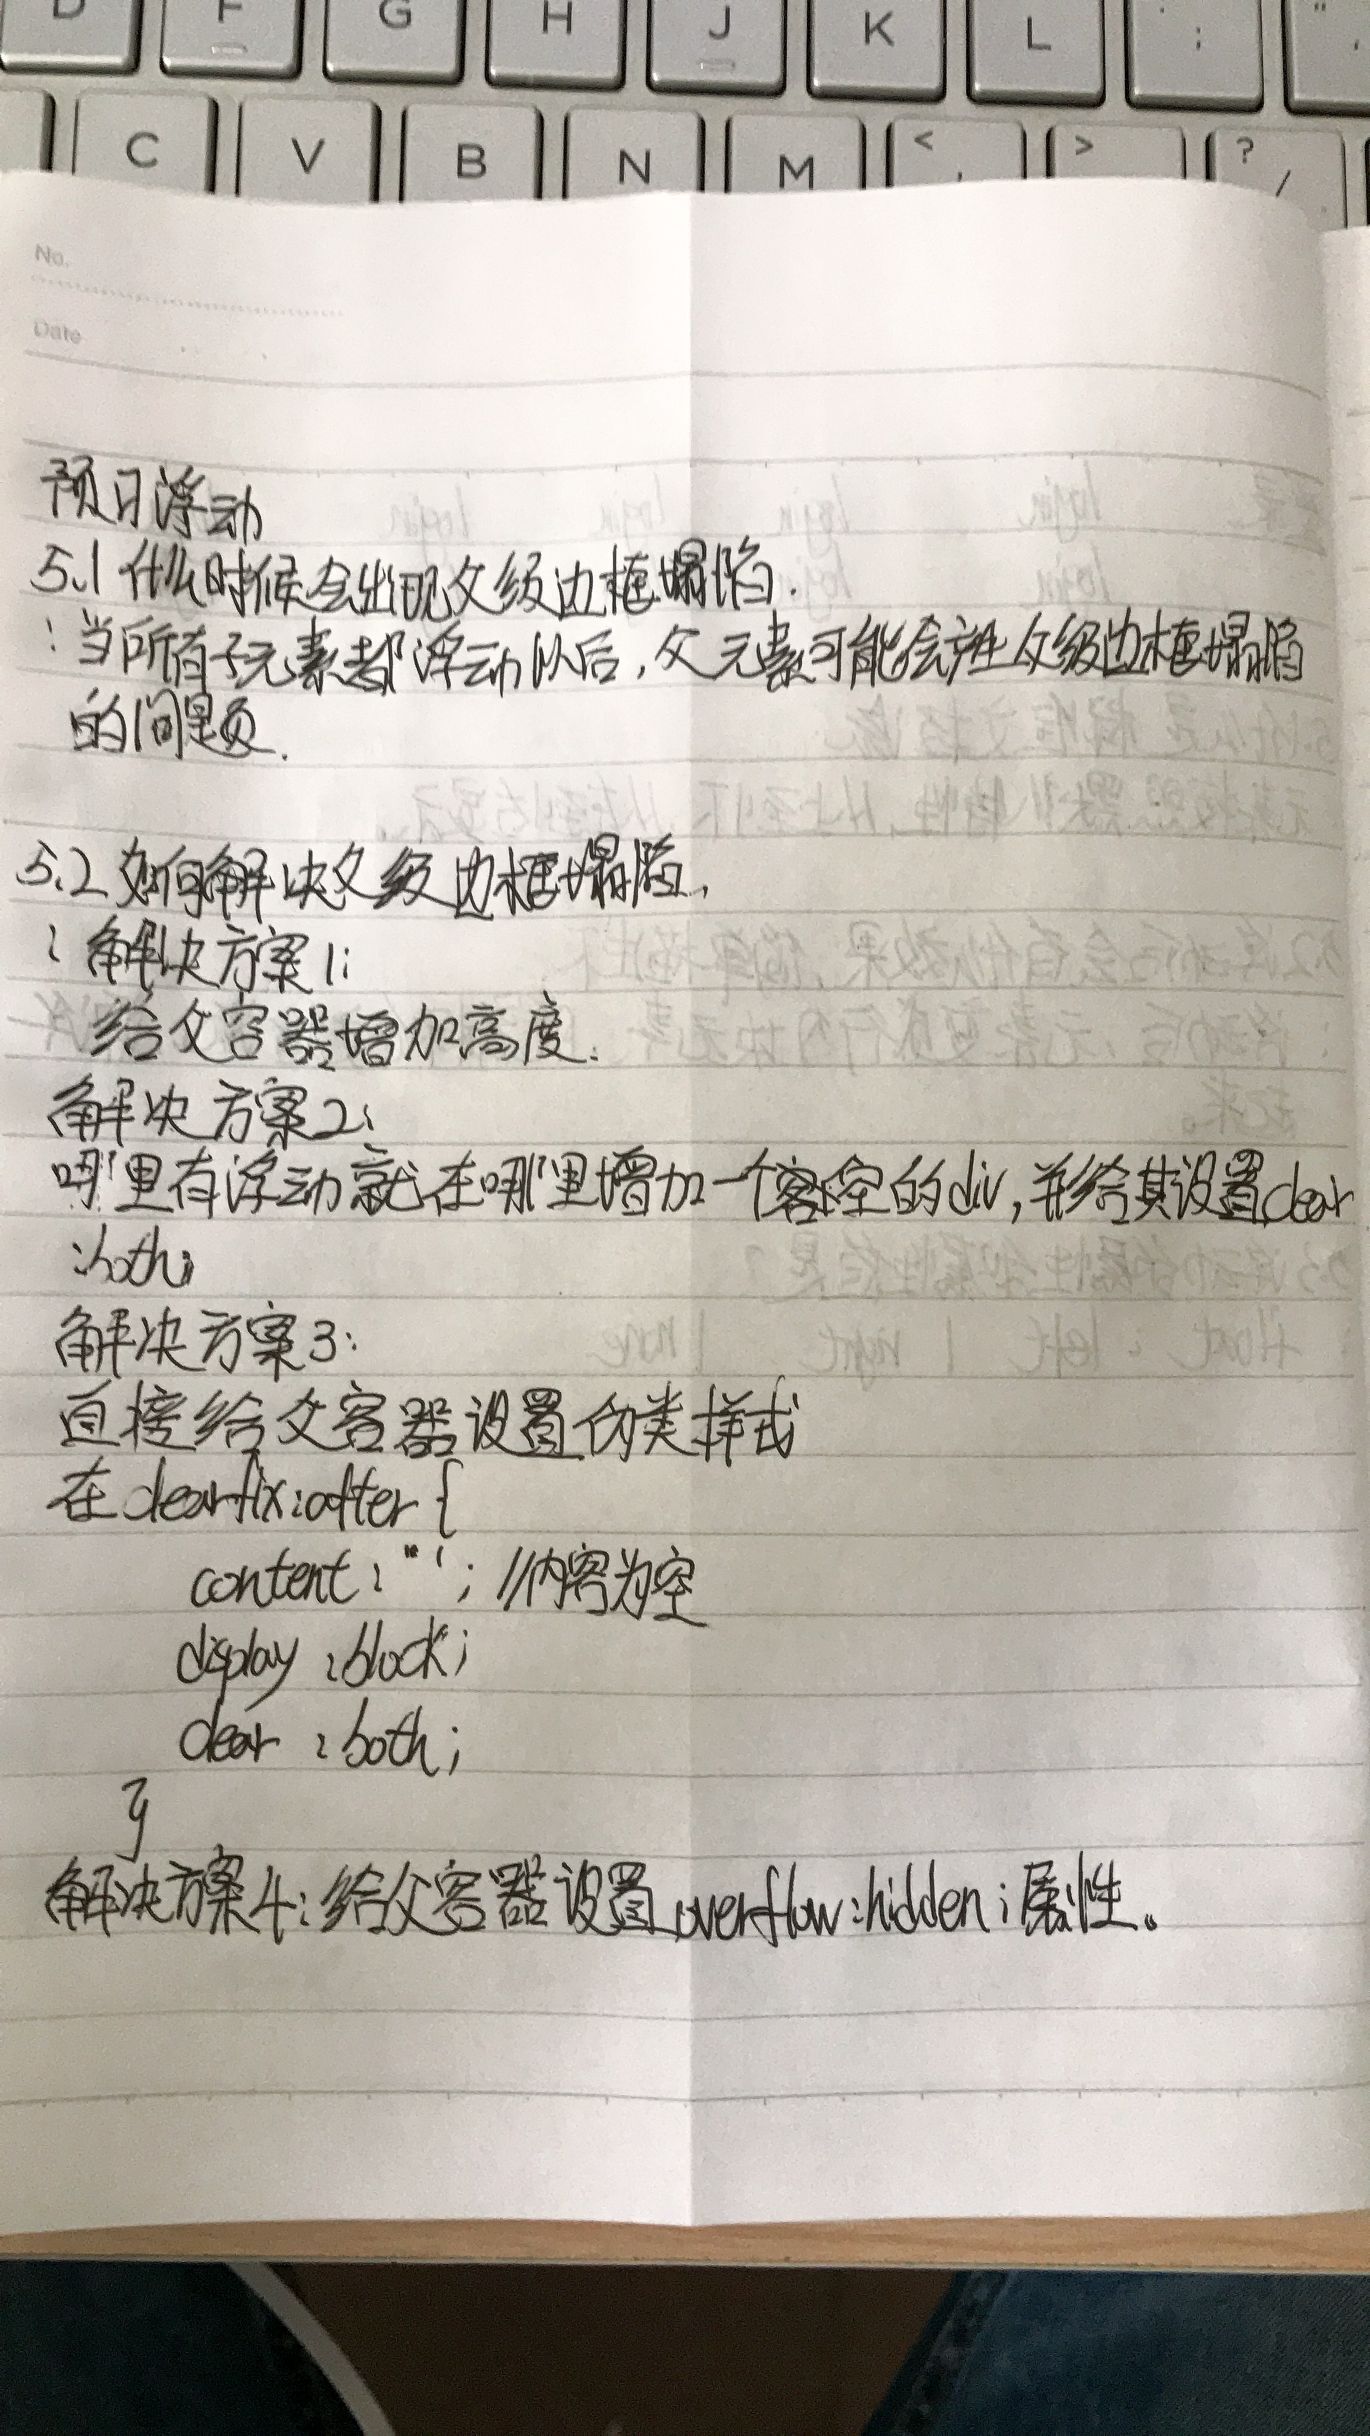 D F G H J K L : ; "
C V B N M < , > ? /
No.
Date
预日浮动
5.1 什么时候会出现父级边框塌陷.
: 当所有子元素都浮动以后, 父元素可能会产生父级边框塌陷
的问题.
5.2 如何解决父级边框塌陷,
: 解决方案1:
给父容器增加高度.
解决方案2:
哪里有浮动就在哪里增加一个空的div, 并给其设置clear
:both;
解决方案3:
直接给父容器设置伪类样式
在clearfix:after {
content: ""; //内容为空
display :block;
clear :both;
}
解决方案4: 给父容器设置overflow:hidden;属性。